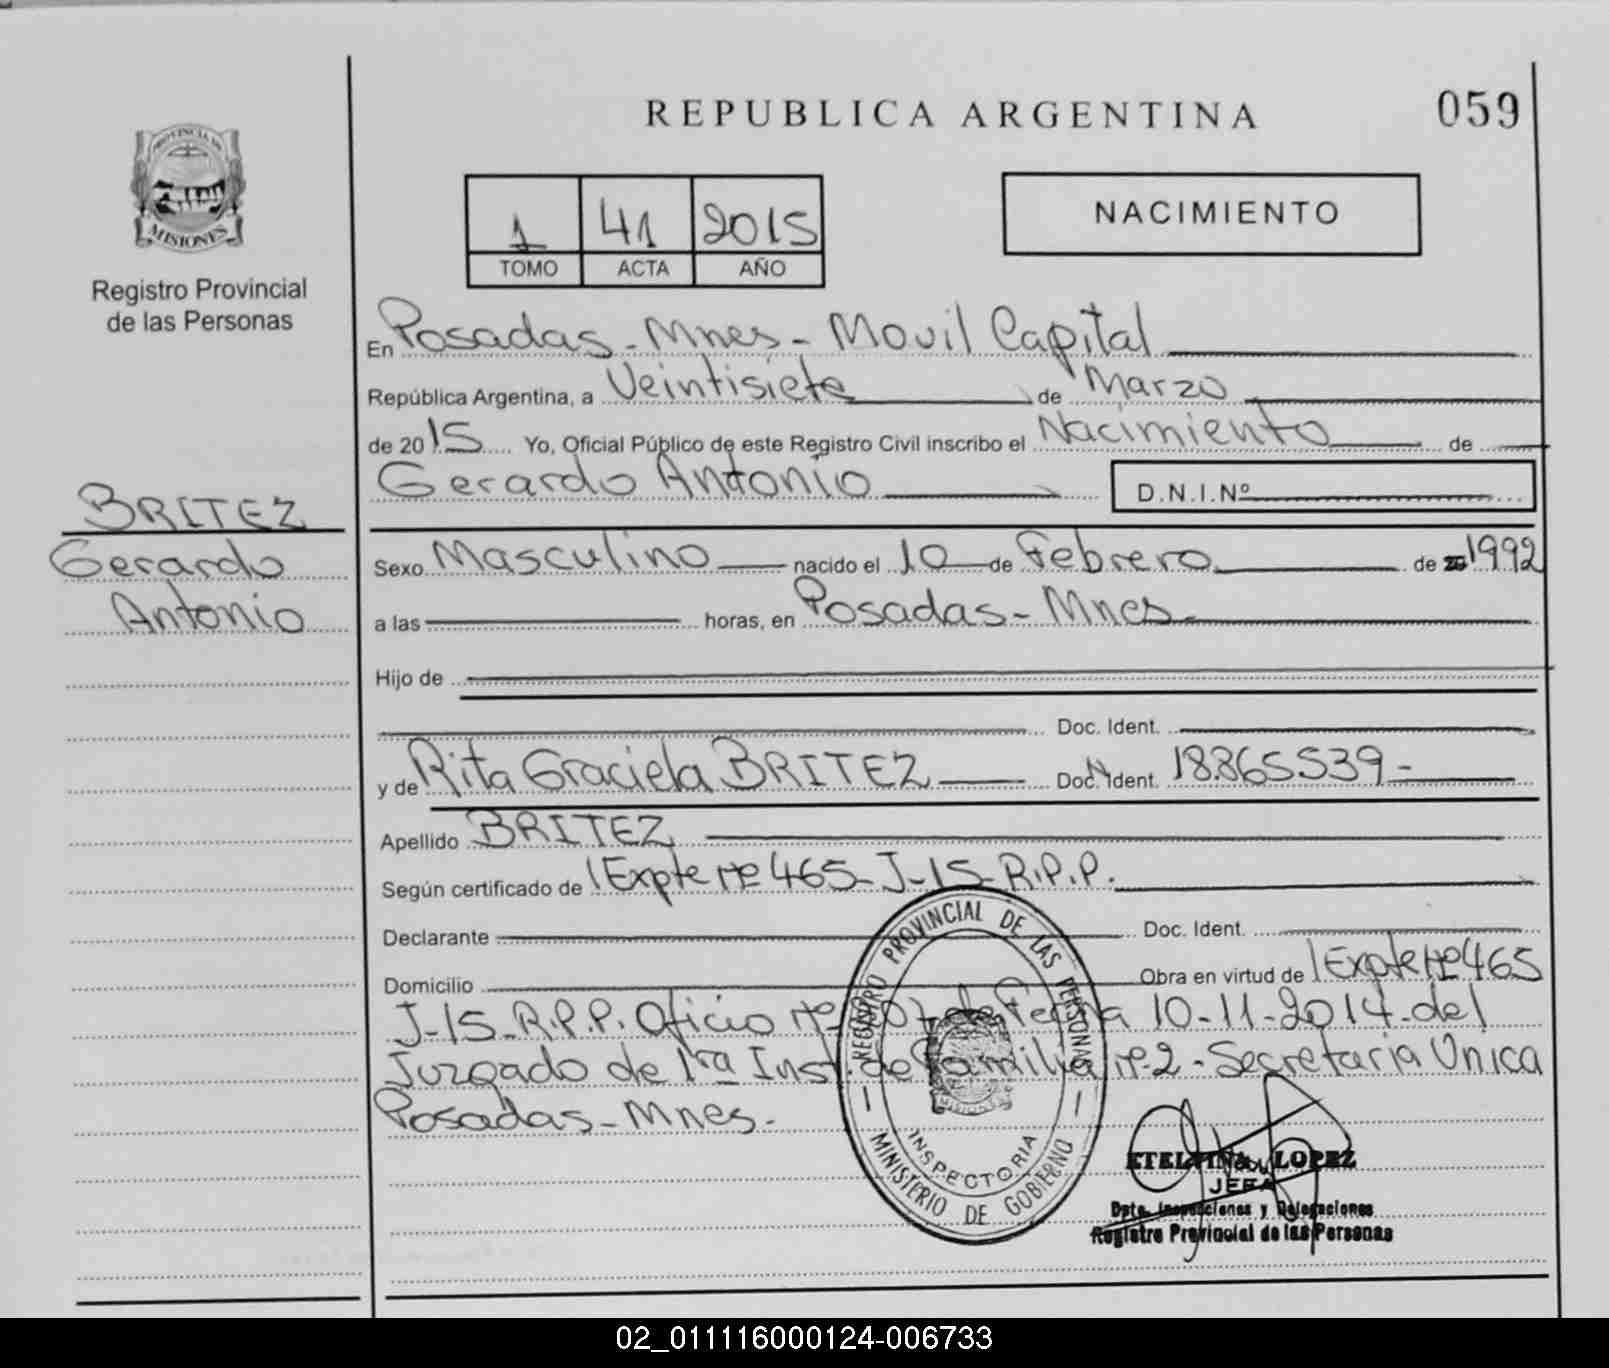 REPUBLICA ARGENTINA
059
PROVINCIA DE
MISIONES
Registro Provincial
de las Personas
1 41 2015
TOMO ACTA AÑO
NACIMIENTO
En Posadas - Mnes - Movil Capital
República Argentina, a Veintisiete de Marzo
de 2015 Yo, Oficial Público de este Registro Civil inscribo el Nacimiento de
Gerardo Antonio D.N.I.Nº
BRITEZ
Gerardo
Antonio
Sexo Masculino nacido el 10 de Febrero de 1992
a las horas, en Posadas - Mnes -
Hijo de
Doc. Ident.
y de Rita Graciela BRITEZ Doc. Ident. 18.865539 -
Apellido BRITEZ
Según certificado de Expte Nº 465 - J - 15 - R.P.P.
Declarante Doc. Ident.
Domicilio Obra en virtud de Expte Nº 465
J-15-R.P.P. Oficio Nº de Fecha 10-11-2014 - del
Juzgado de 1ra Inst. de Familia Nº 2 - Secretaria Unica
Posadas - Mnes.
REGISTRO PROVINCIAL DE LAS PERSONAS
INSPECTORIA
MINISTERIO DE GOBIERNO
ETELVINA LOPEZ
JEFA
Dpto. Inspecciones y Delegaciones
Registro Provincial de las Personas
02_011116000124-006733